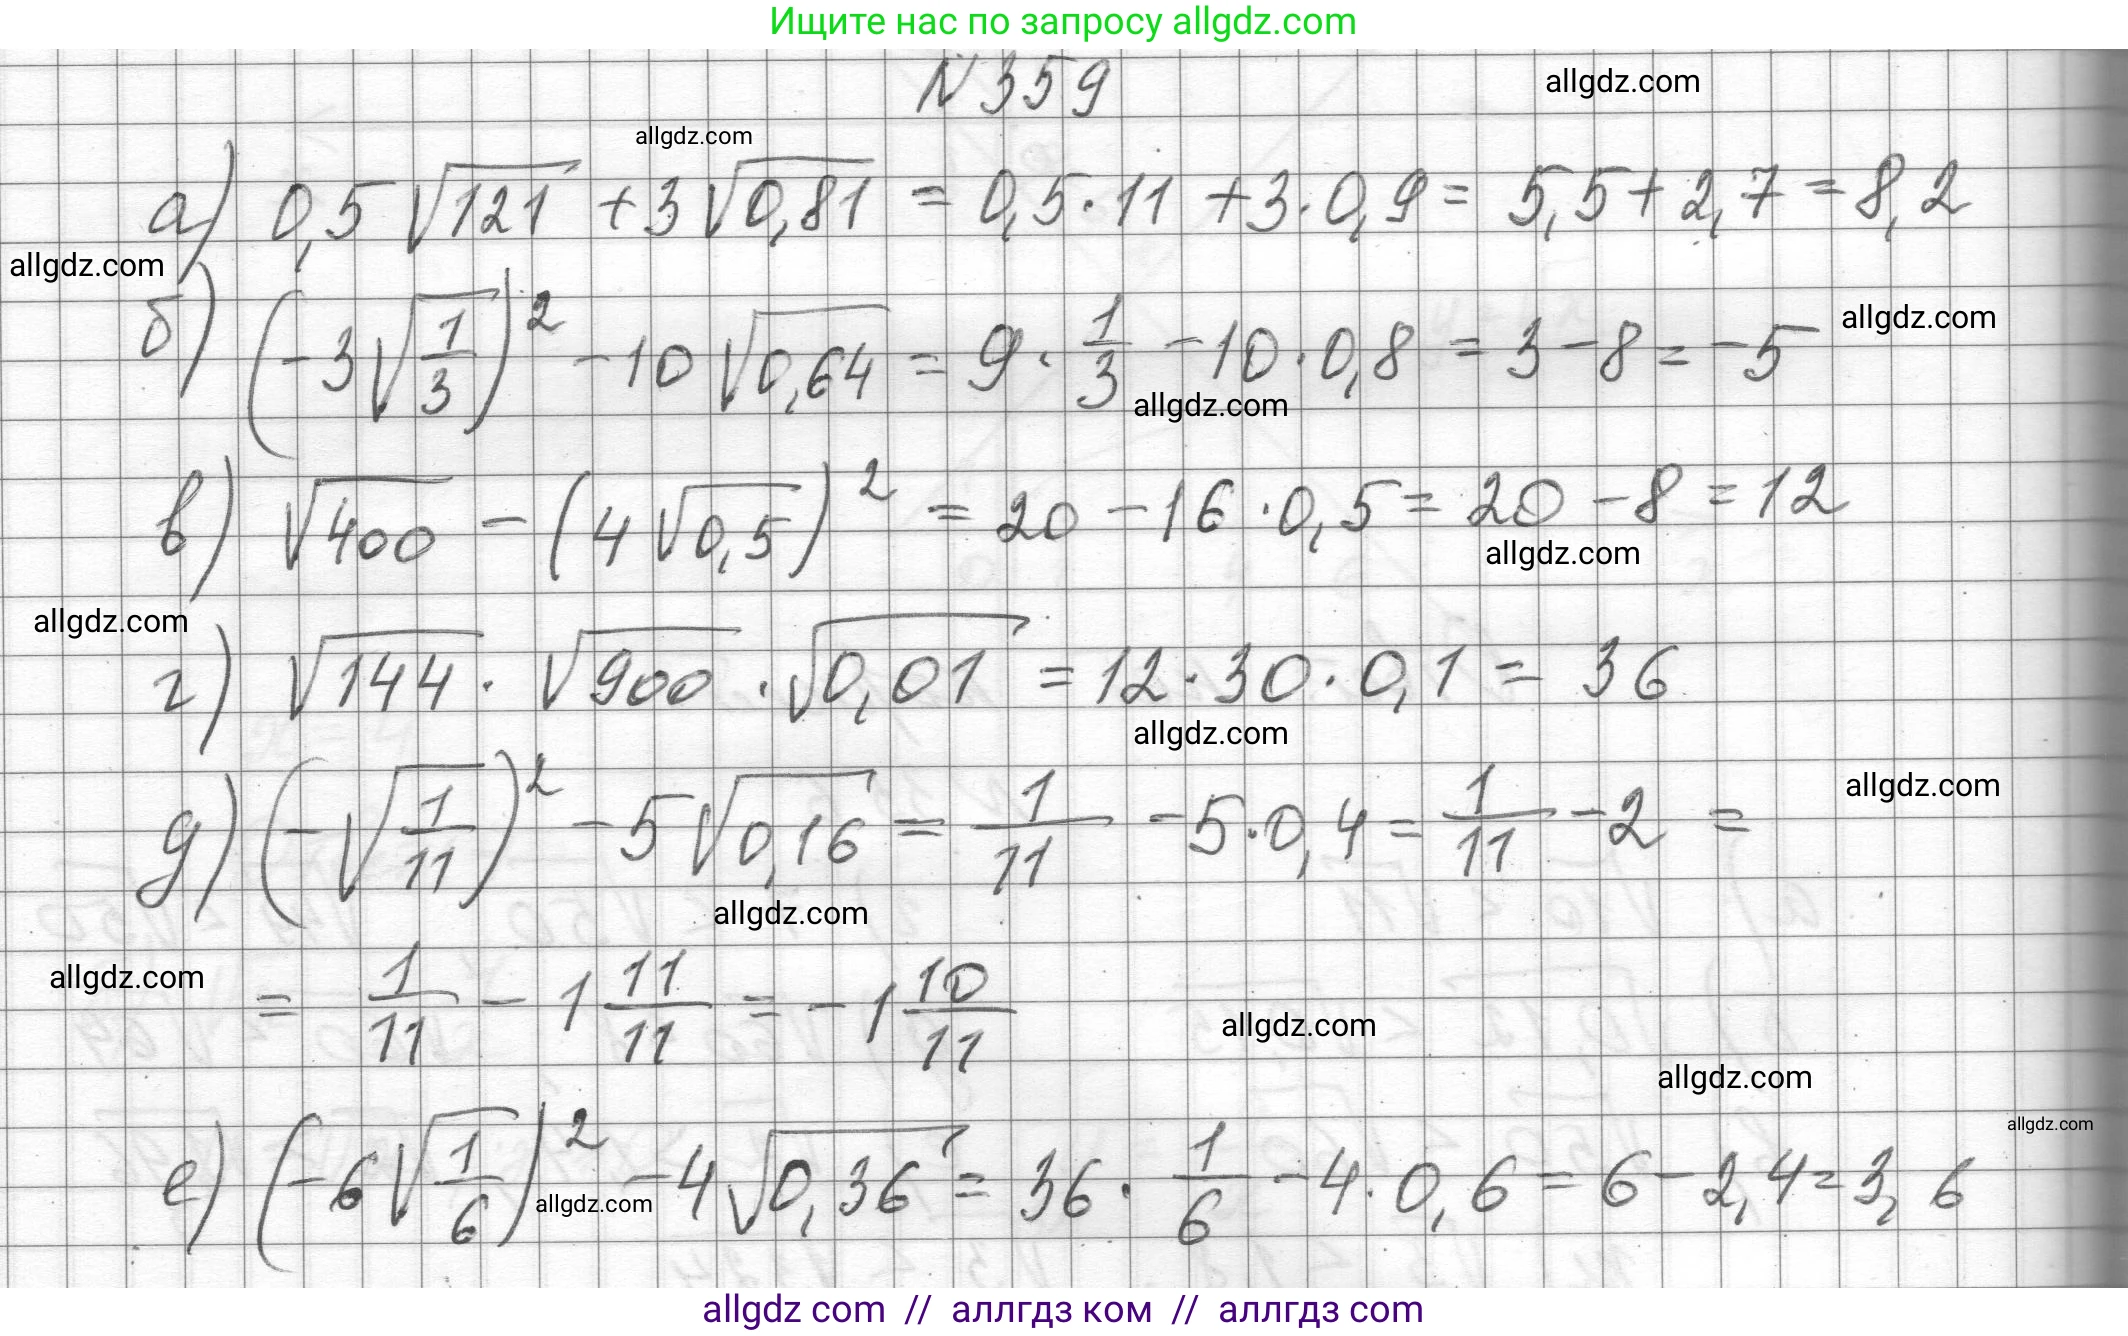 Ищите нас по запросу allgdz.com
N 359
allgdz.com
allgdz.com
а) 0,5 √121 + 3 √0,81 = 0,5 · 11 + 3 · 0,9 = 5,5 + 2,7 = 8,2
allgdz.com
б) (-3√(1/3))² - 10 √0,64 = 9 · 1/3 - 10 · 0,8 = 3 - 8 = -5
allgdz.com
allgdz.com
в) √400 - (4 √0,5)² = 20 - 16 · 0,5 = 20 - 8 = 12
allgdz.com
allgdz.com
г) √144 · √900 · √0,01 = 12 · 30 · 0,1 = 36
allgdz.com
allgdz.com
д) (-√(1/11))² - 5 √0,16 = 1/11 - 5 · 0,4 = 1/11 - 2 =
allgdz.com
allgdz.com
= 1/11 - 1 11/11 = -1 10/11
allgdz.com
allgdz.com
allgdz.com
е) (-6√(1/6))² - 4 √0,36 = 36 · 1/6 - 4 · 0,6 = 6 - 2,4 = 3,6
allgdz.com
allgdz com // аллгдз ком // аллгдз com